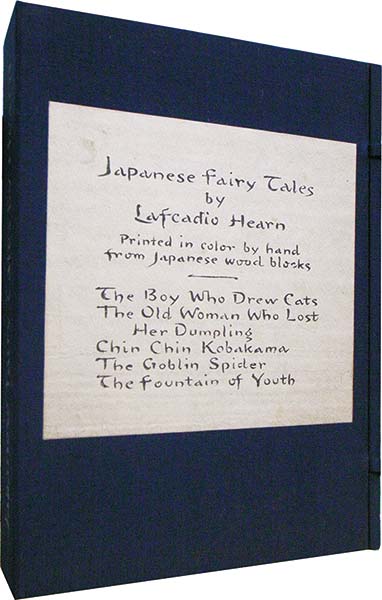 Japanese Fairy Tales
by
Lafcadio Hearn
Printed in color by hand
from Japanese wood blocks
The Boy Who Drew Cats
The Old Woman Who Lost
Her Dumpling
Chin Chin Kobakama
The Goblin Spider
The Fountain of Youth